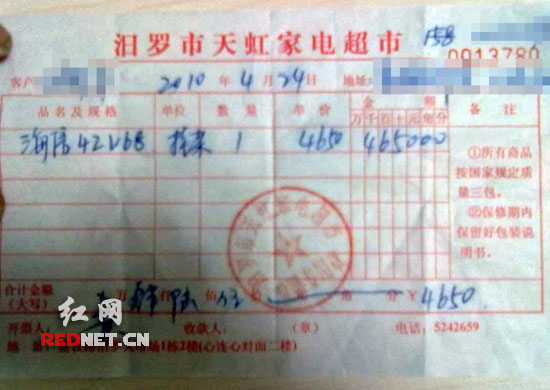 汨罗市天虹家电超市 158
0013780
客户 2010 年 4 月 24 日 地址:
品名及规格 单位 数量 单价 金额 备注
万千百十元角分
海信42V68 挂架 1 4650 465000
①所有商品
按国家规定质
量三包。
②保修期内
保留好包装说
明书。
合计金额
(大写) 万 仟 佰 拾 元 角 分 ¥ 4650
开票人: 收款人: (章) 电话: 5242659
地 址: 市场1栋2楼(心连心对面二楼)
红网
REDNET.CN